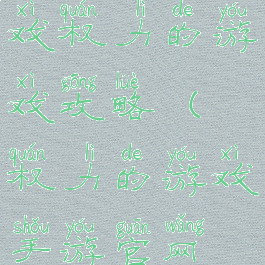 xì quán lì de yóu
戏权力的游
xì gōng lüè
戏攻略(
quán lì de yóu xì
权力的游戏
shǒu yóu guān wǎng
手游官网